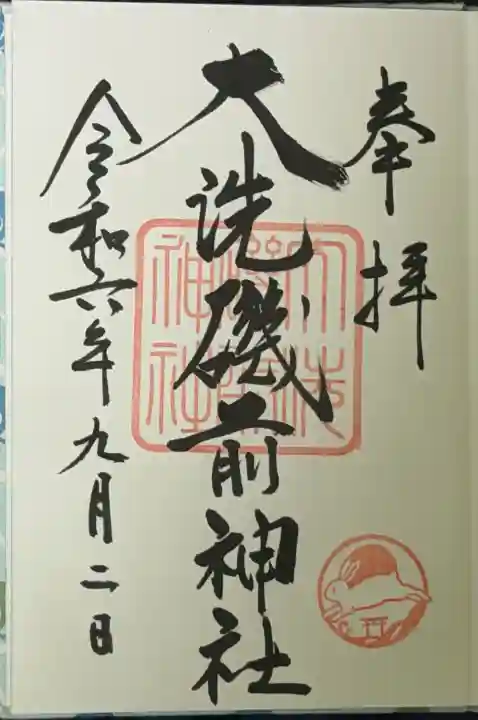 奉拝
大洗磯前神社
令和六年九月二日
大洗磯前神社